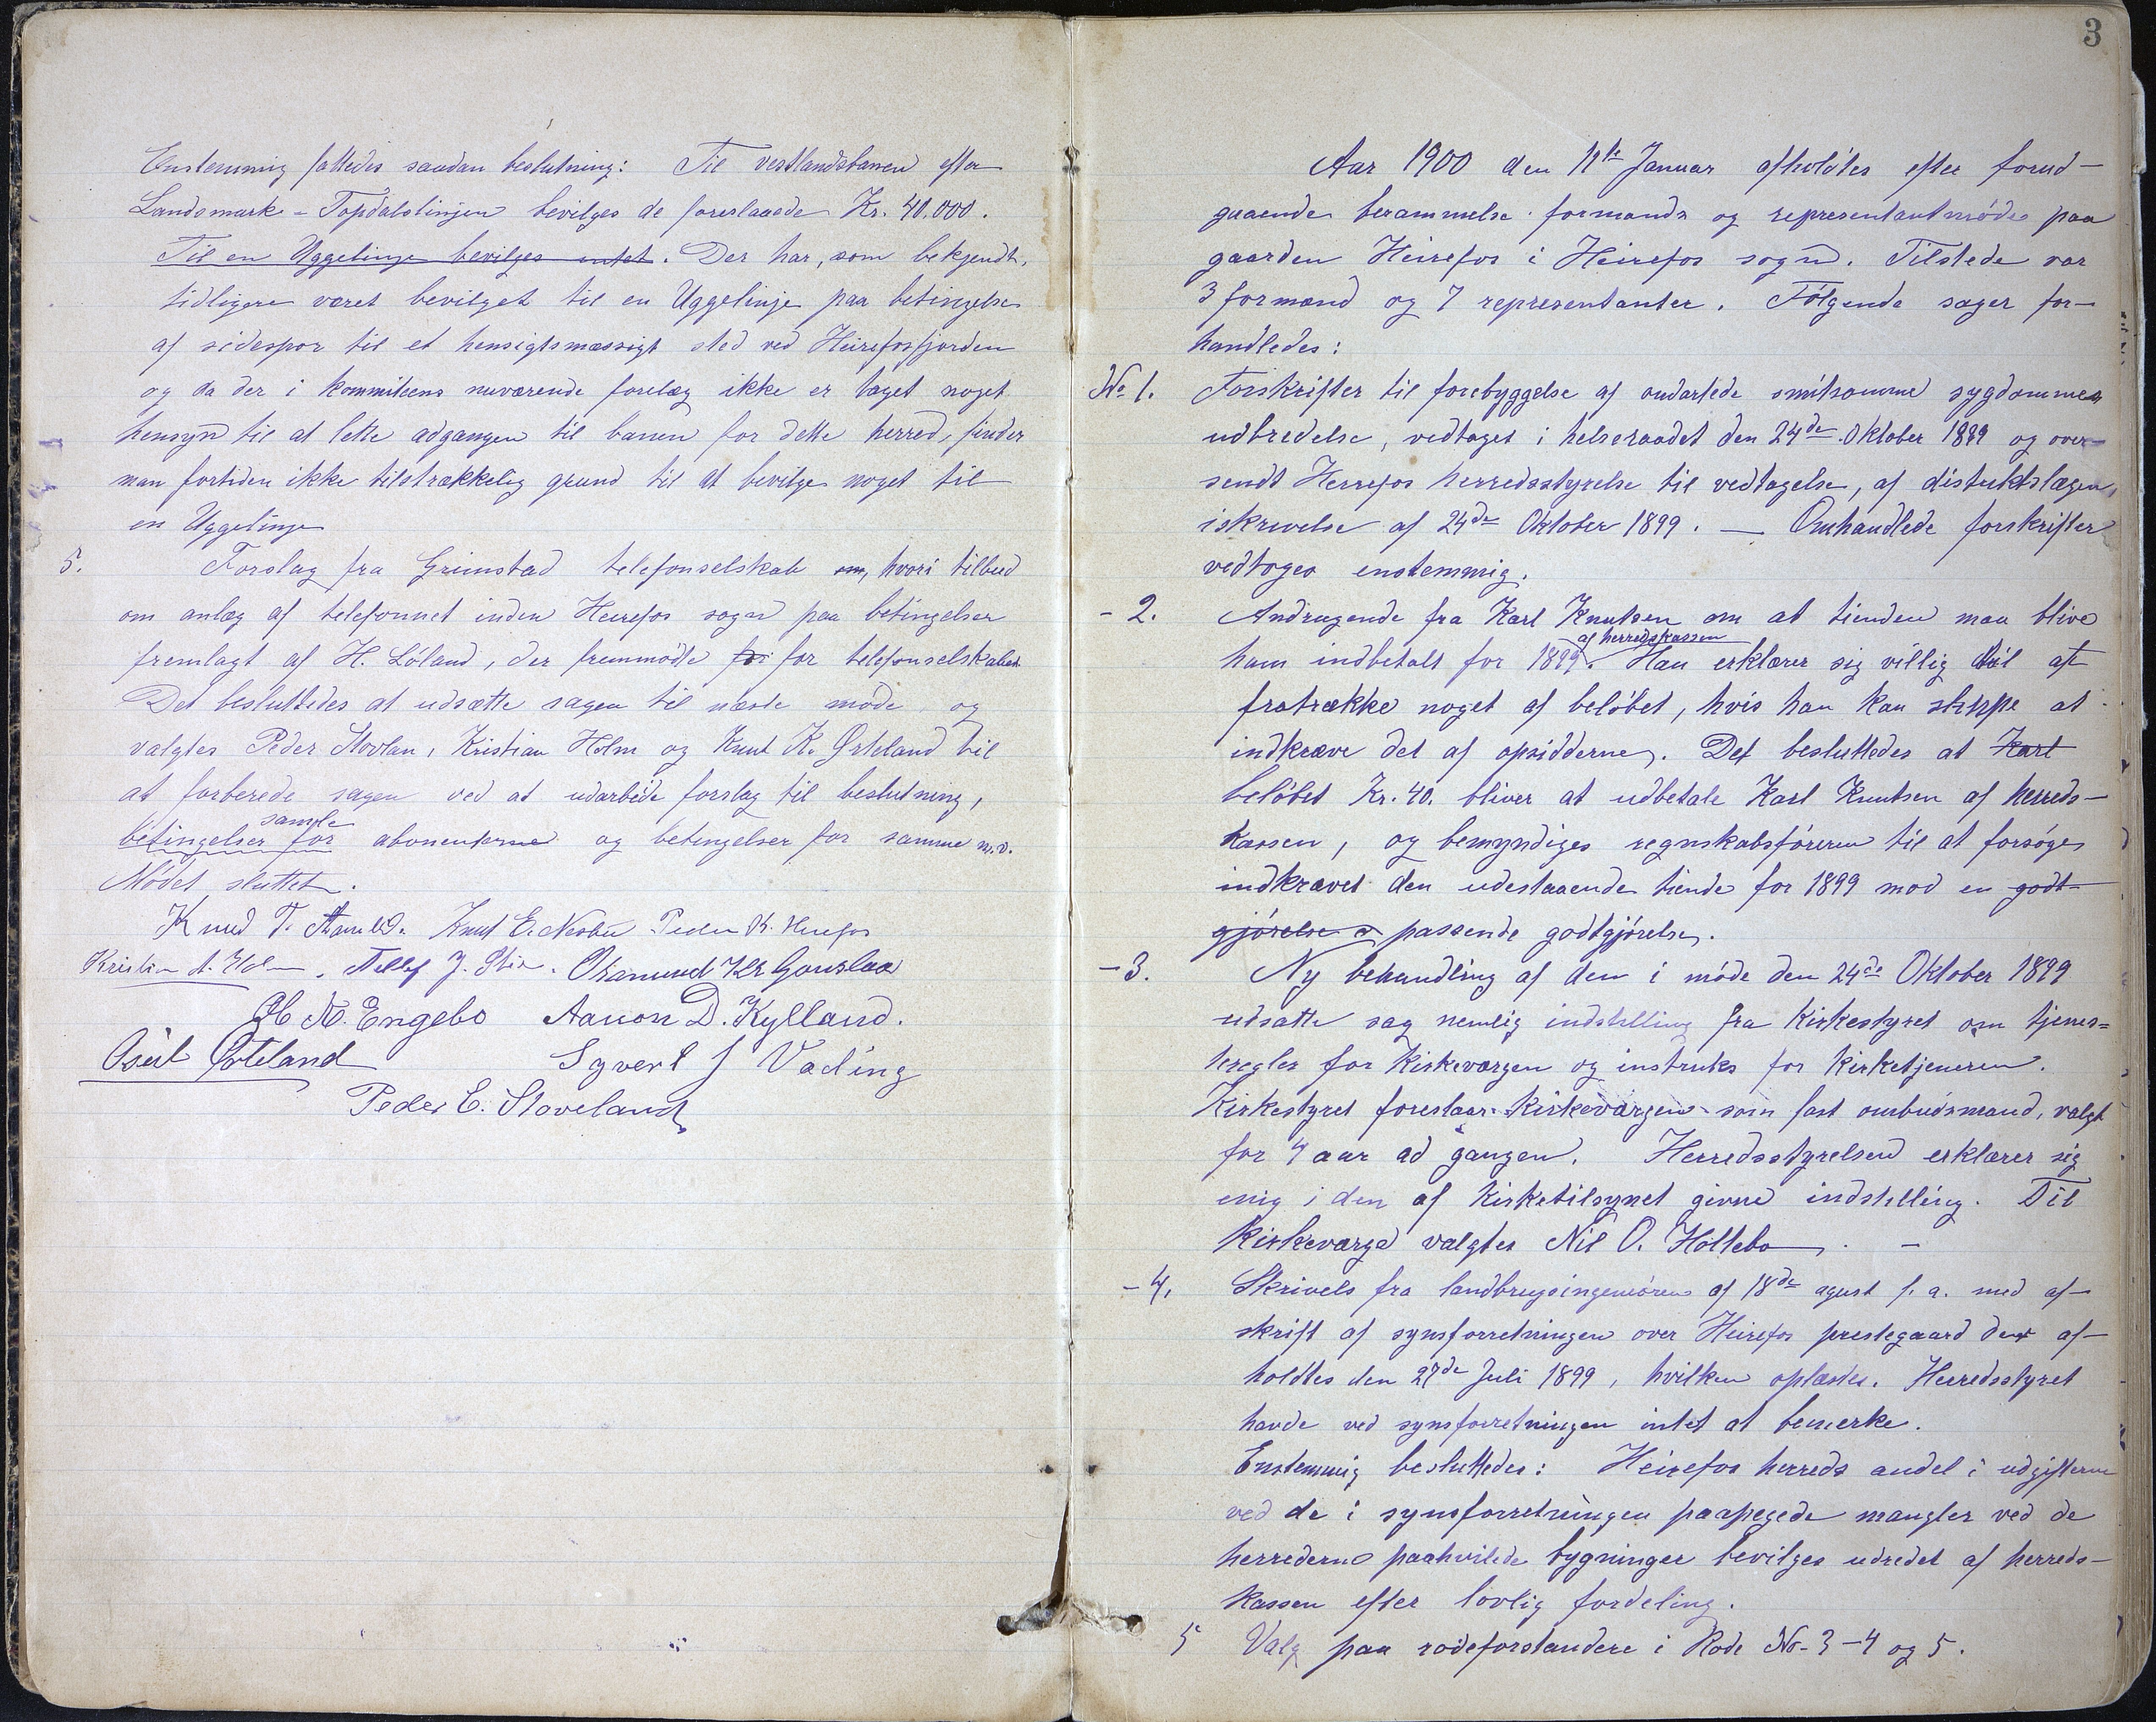 Enstemmig fattedes saadan beslutning: Til vestlandsbanen efter
Landsmark - Topdalslinjen bevilges de foreslaaede Kr. 40.000.
Til en Uggelinje bevilges intet. Der har, som bekjendt,
tidligere været bevilget til en Uggelinje paa betingelse
af sidespor til et hensigtsmæssigt sted ved Heirefosfjorden
og da der i kommiteens nuværende forelæg ikke er taget noget
hensyn til at lette adgangen til banen for dette herred, finder
man fortiden ikke tilstrækkelig grund til at bevilge noget til
en Uggelinje
5. Forslag fra Grimstad telefonselskab om, hvori tilbud
om anlæg af telefonnet inden Heirefos sogn paa betingelser
fremlagt af H. Löland, der fremmödte for for telefonselskabet
Det besluttedes at udsætte sagen til næste möde, og
valgtes Peder Stovlan, Kristian Holm og Knut K. Örteland til
at forberede sagen ved at udarbeide forslag til beslutning,
samle
betingelser for abonenterne og betingelser for samme m.v.
Mödet sluttet.
Knud T. Knut E. Nesbu Peder K. Heirefos
Kristian A. Holm. Tellef J. Osmund Kr. Gauslaa
Ole N. Engebo Aanon D. Kylland.
Osuld Örteland Syvert J Vading
Peder E. Stoveland
3
Aar 1900 den 11te Januar afholdtes efter forud-
gaaende berammelse formands og representantmöde paa
gaarden Heirefos i Heirefos sogn. Tilstede var
3 formænd og 7 representanter. Fölgende sager for-
handledes:
No 1. Forskrifter til forebyggelse af ondartede smitsomme sygdommes
udbredelse, vedtaget i helseraadet den 24de Oktober 1899 og over-
sendt Herrefos herredsstyrelse til vedtagelse, af distriktslægen
i skrivelse af 24de Oktober 1899. — Omhandlede forskrifter
vedtoges enstemmig.
- 2. Andragende fra Karl Knutsen om at tienden maa blive
af herredskassen
ham indbetalt for 1899. Han erklærer sig villig til at
fratrække noget af belöbet, hvis han kan slippe at
indkræve det af opsidderne. Det besluttedes at Karl
belöbet Kr. 40. bliver at udbetale Karl Knutsen af herreds-
kassen, og bemyndiges regnskabsföreren til at forsöge
indkrævet den udestaaende tiende for 1899 mod en godt-
gjörelse a passende godtgjörelse.
- 3. Ny behandling af den i möde den 24de Oktober 1899
udsatte sag nemlig indstilling fra Kirkestyret om tjenes-
teregler for Kirkeværgen og instruks for Kirketjeneren.
Kirkestyret foreslaar Kirkeværgen som fast ombudsmand, valgt
for 4 aar ad gangen. Herredsstyrelsen erklærer sig
enig i den af Kirketilsynet givne indstilling. Til
Kirkeværge valgtes Nil O. Höllebo. -
- 4. Skrivels fra landbrugsingeniören af 18de agust f. a. med af-
skrift af synsforretningen over Heirefos prestegaard der af-
holdtes den 27de Juli 1899, hvilken oplæstes. Herredsstyret
havde ved synsforretningen intet at bemerke.
Enstemmig besluttedes: Heirefos herreds andel i udgifterne
ved de i synsforretningen paapegede mangler ved de
herrederne paahvilede bygninger bevilges udredet af herreds-
kassen efter lovlig fordeling.
5 Valg paa rodeforstandere i Rode No- 3 - 4 og 5.